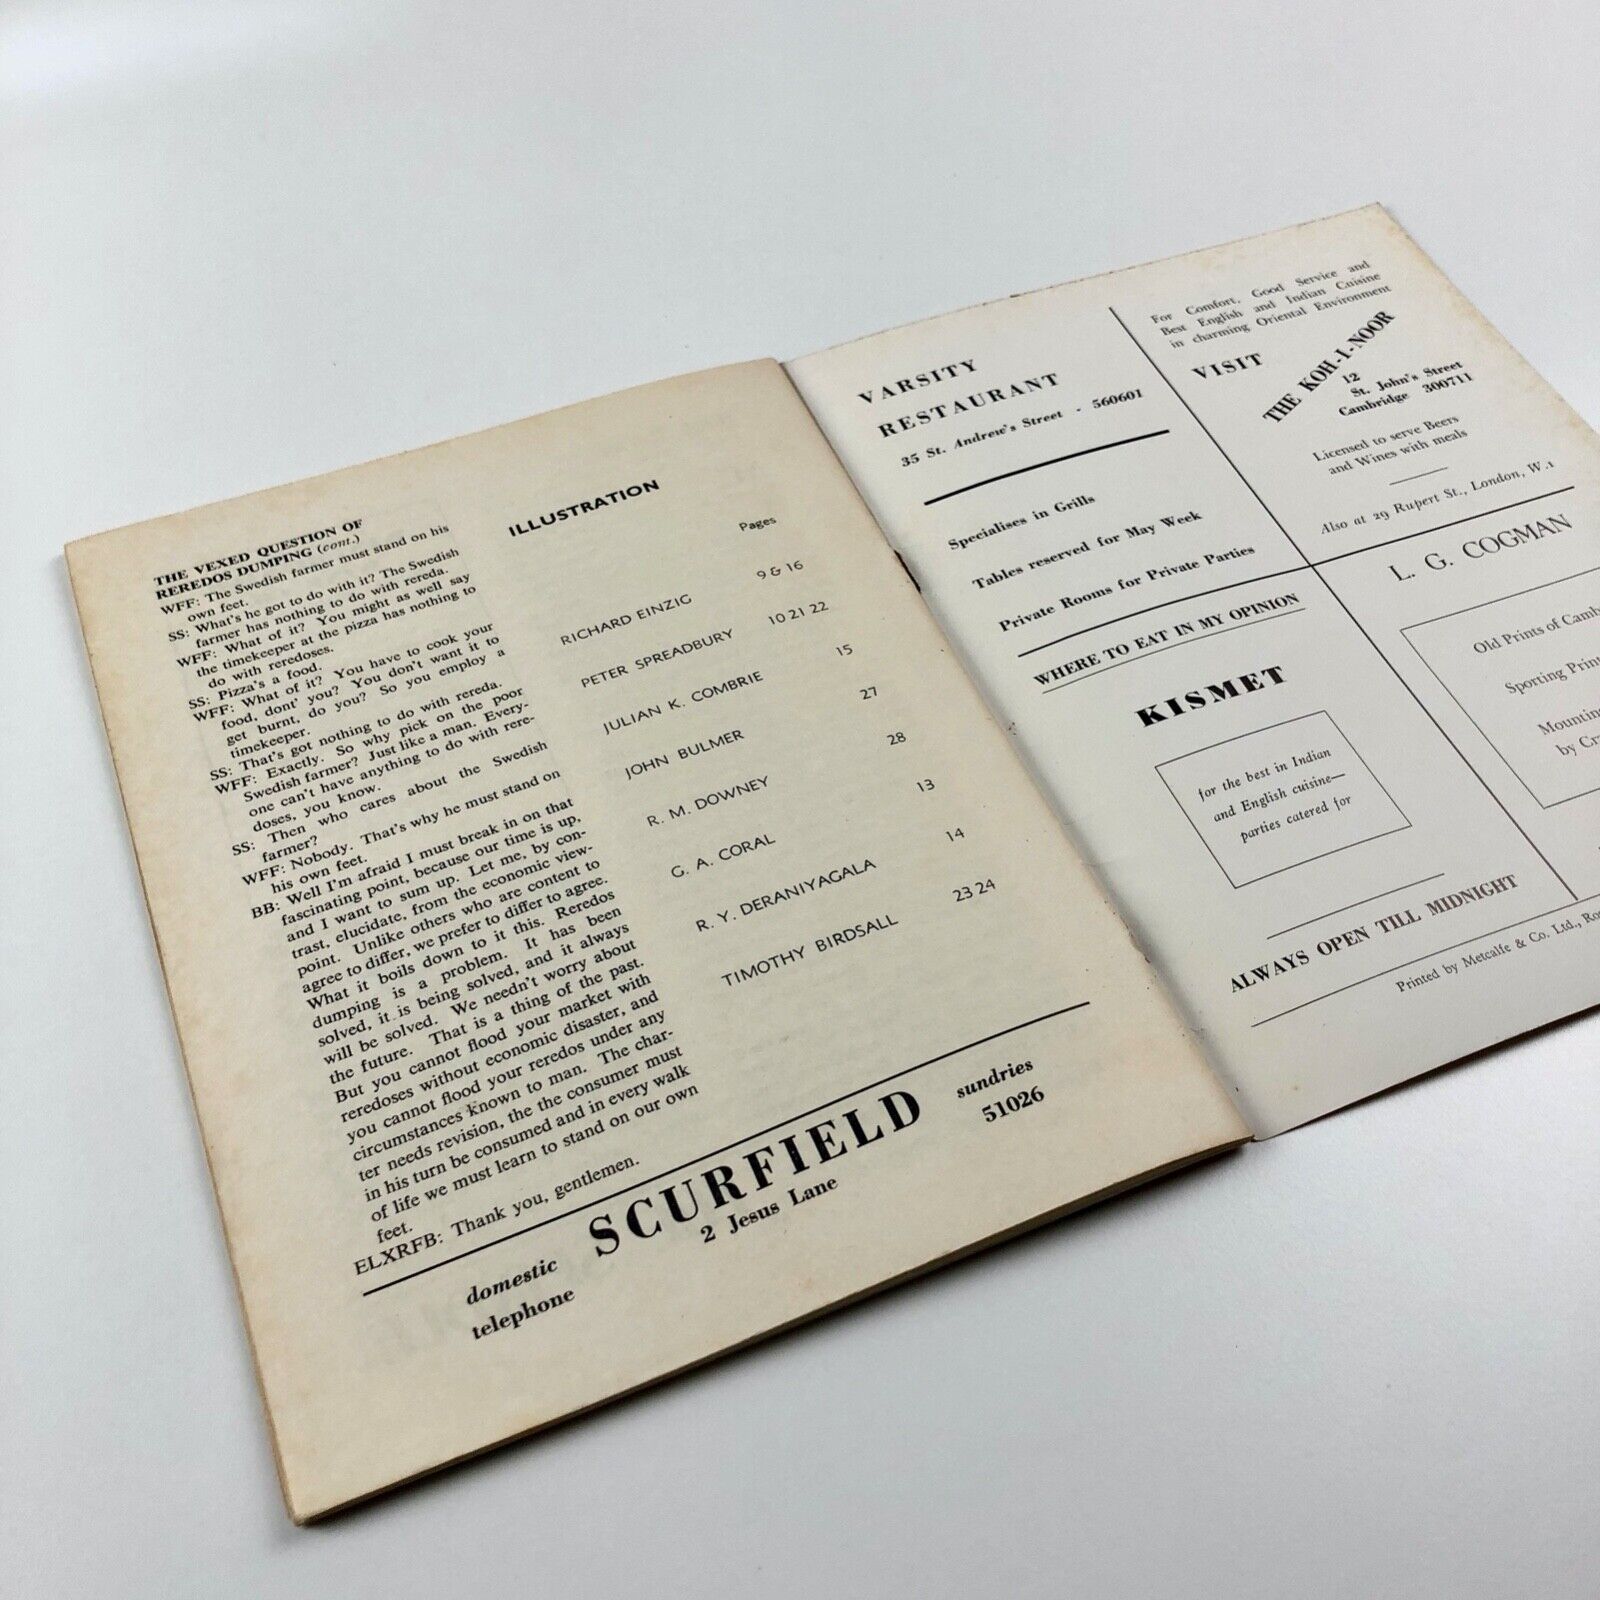 THE VEXED QUESTION OF
REREDOS DUMPING (cont.)
WFF: The Swedish farmer must stand on his
own feet.
SS: What's he got to do with it? The Swedish
farmer has nothing to do with rereda.
WFF: What of it? You might as well say
the timekeeper at the pizza has nothing to
do with reredoses.
SS: Pizza's a food.
WFF: What of it? You have to cook your
food, dont' you? You don't want it to
get burnt, do you? So you employ a
timekeeper.
SS: That's got nothing to do with rereda.
WFF: Exactly. So why pick on the poor
Swedish farmer? Just like a man. Every-
one can't have anything to do with rere-
doses, you know.
SS: Then who cares about the Swedish
farmer?
WFF: Nobody. That's why he must stand on
his own feet.
BB: Well I'm afraid I must break in on that
fascinating point, because our time is up,
and I want to sum up. Let me, by con-
trast, elucidate, from the economic view-
point. Unlike others who are content to
agree to differ, we prefer to differ to agree.
What it boils down to it this. Reredos
dumping is a problem. It has been
solved, it is being solved, and it always
will be solved. We needn't worry about
the future. That is a thing of the past.
But you cannot flood your market with
reredoses without economic disaster, and
you cannot flood your reredos under any
circumstances known to man. The char-
ter needs revision, the the consumer must
in his turn be consumed and in every walk
of life we must learn to stand on our own
feet.
ELXRFB: Thank you, gentlemen.
ILLUSTRATION
Pages
RICHARD EINZIG 9 & 16
PETER SPREADBURY 10 21 22
JULIAN K. COMBRIE 15
JOHN BULMER 27
R. M. DOWNEY 28
G. A. CORAL 13
R. Y. DERANIYAGALA 14
TIMOTHY BIRDSALL 23 24
domestic SCURFIELD sundries
telephone 2 Jesus Lane 51026
VARSITY
RESTAURANT
35 St. Andrew's Street - 560601
Specialises in Grills
Tables reserved for May Week
Private Rooms for Private Parties
For Comfort, Good Service and
Best English and Indian Cuisine
in charming Oriental Environment
VISIT
THE KOH-I-NOOR
12
St. John's Street
Cambridge 300711
Licensed to serve Beers
and Wines with meals
Also at 29 Rupert St., London, W.1
WHERE TO EAT IN MY OPINION
KISMET
for the best in Indian
and English cuisine—
parties catered for
ALWAYS OPEN TILL MIDNIGHT
L. G. COGMAN
Old Prints of Camb
Sporting Print
Mounting
by Cr
Printed by Metcalfe & Co. Ltd., Ro